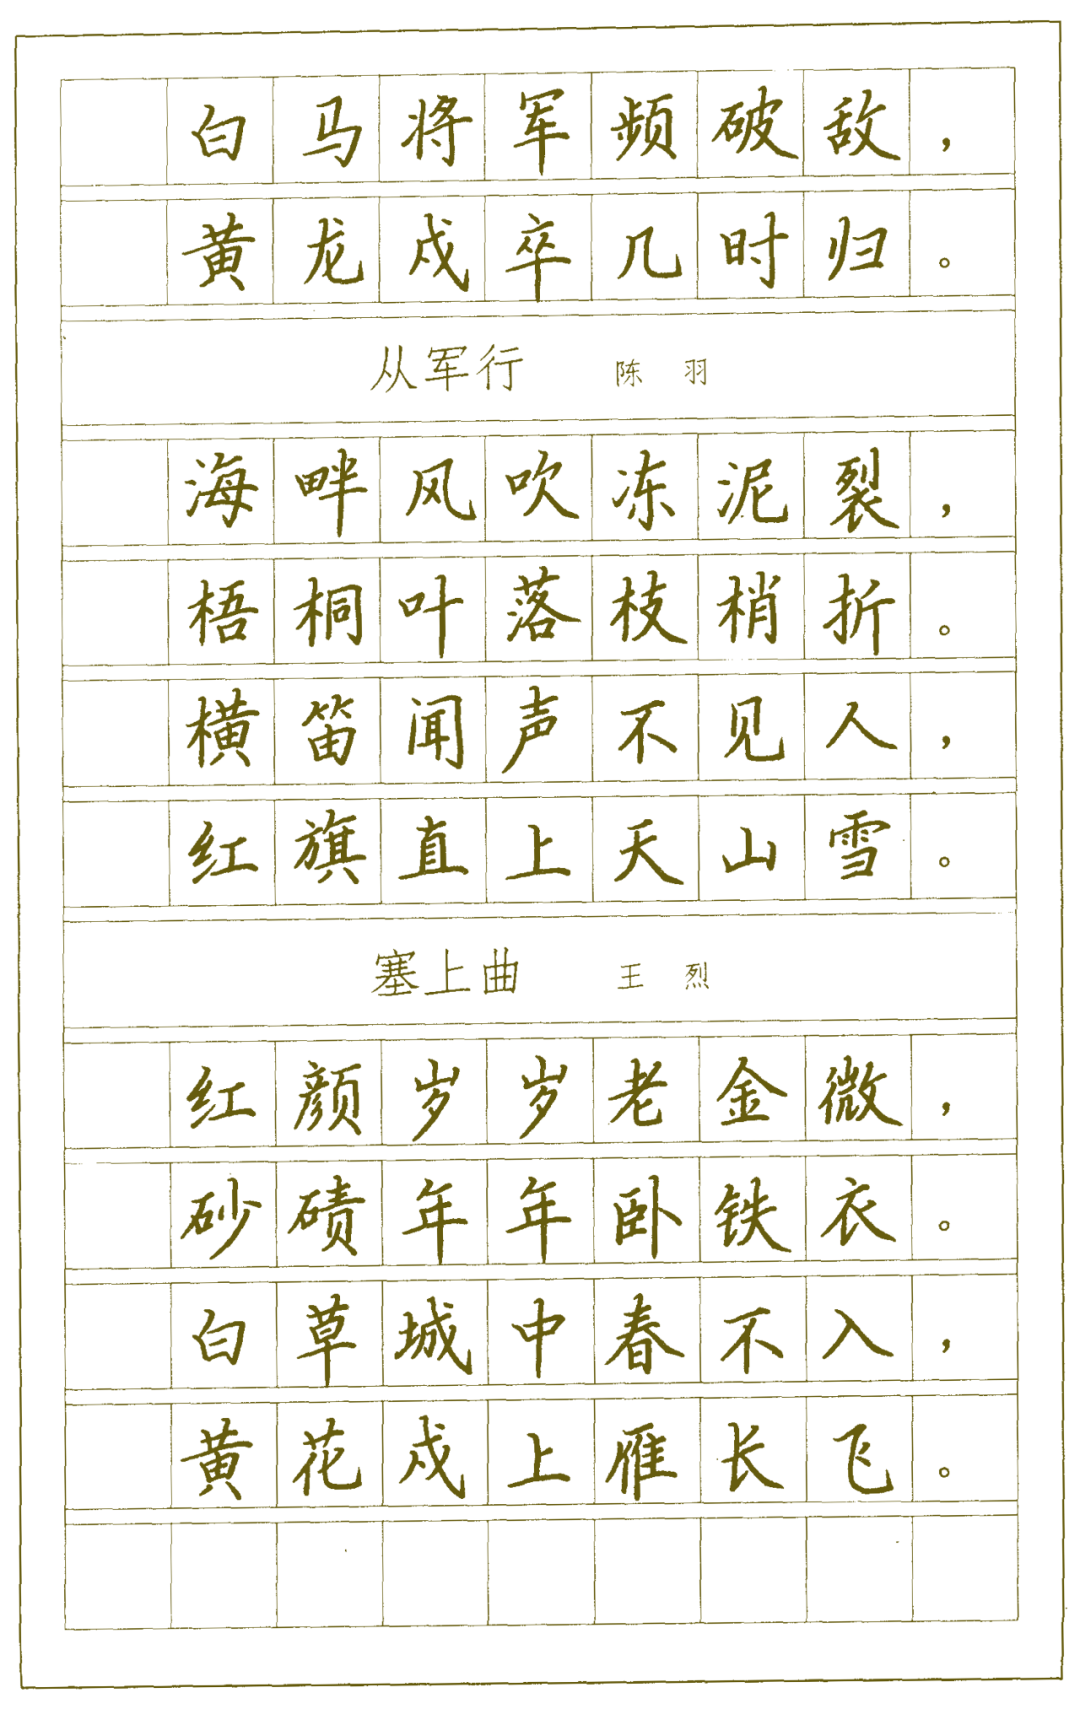 白马将军频破敌，
黄龙戍卒几时归。
从军行 陈羽
海畔风吹冻泥裂，
梧桐叶落枝梢折。
横笛闻声不见人，
红旗直上天山雪。
塞上曲 王烈
红颜岁岁老金微，
砂碛年年卧铁衣。
白草城中春不入，
黄花戍上雁长飞。